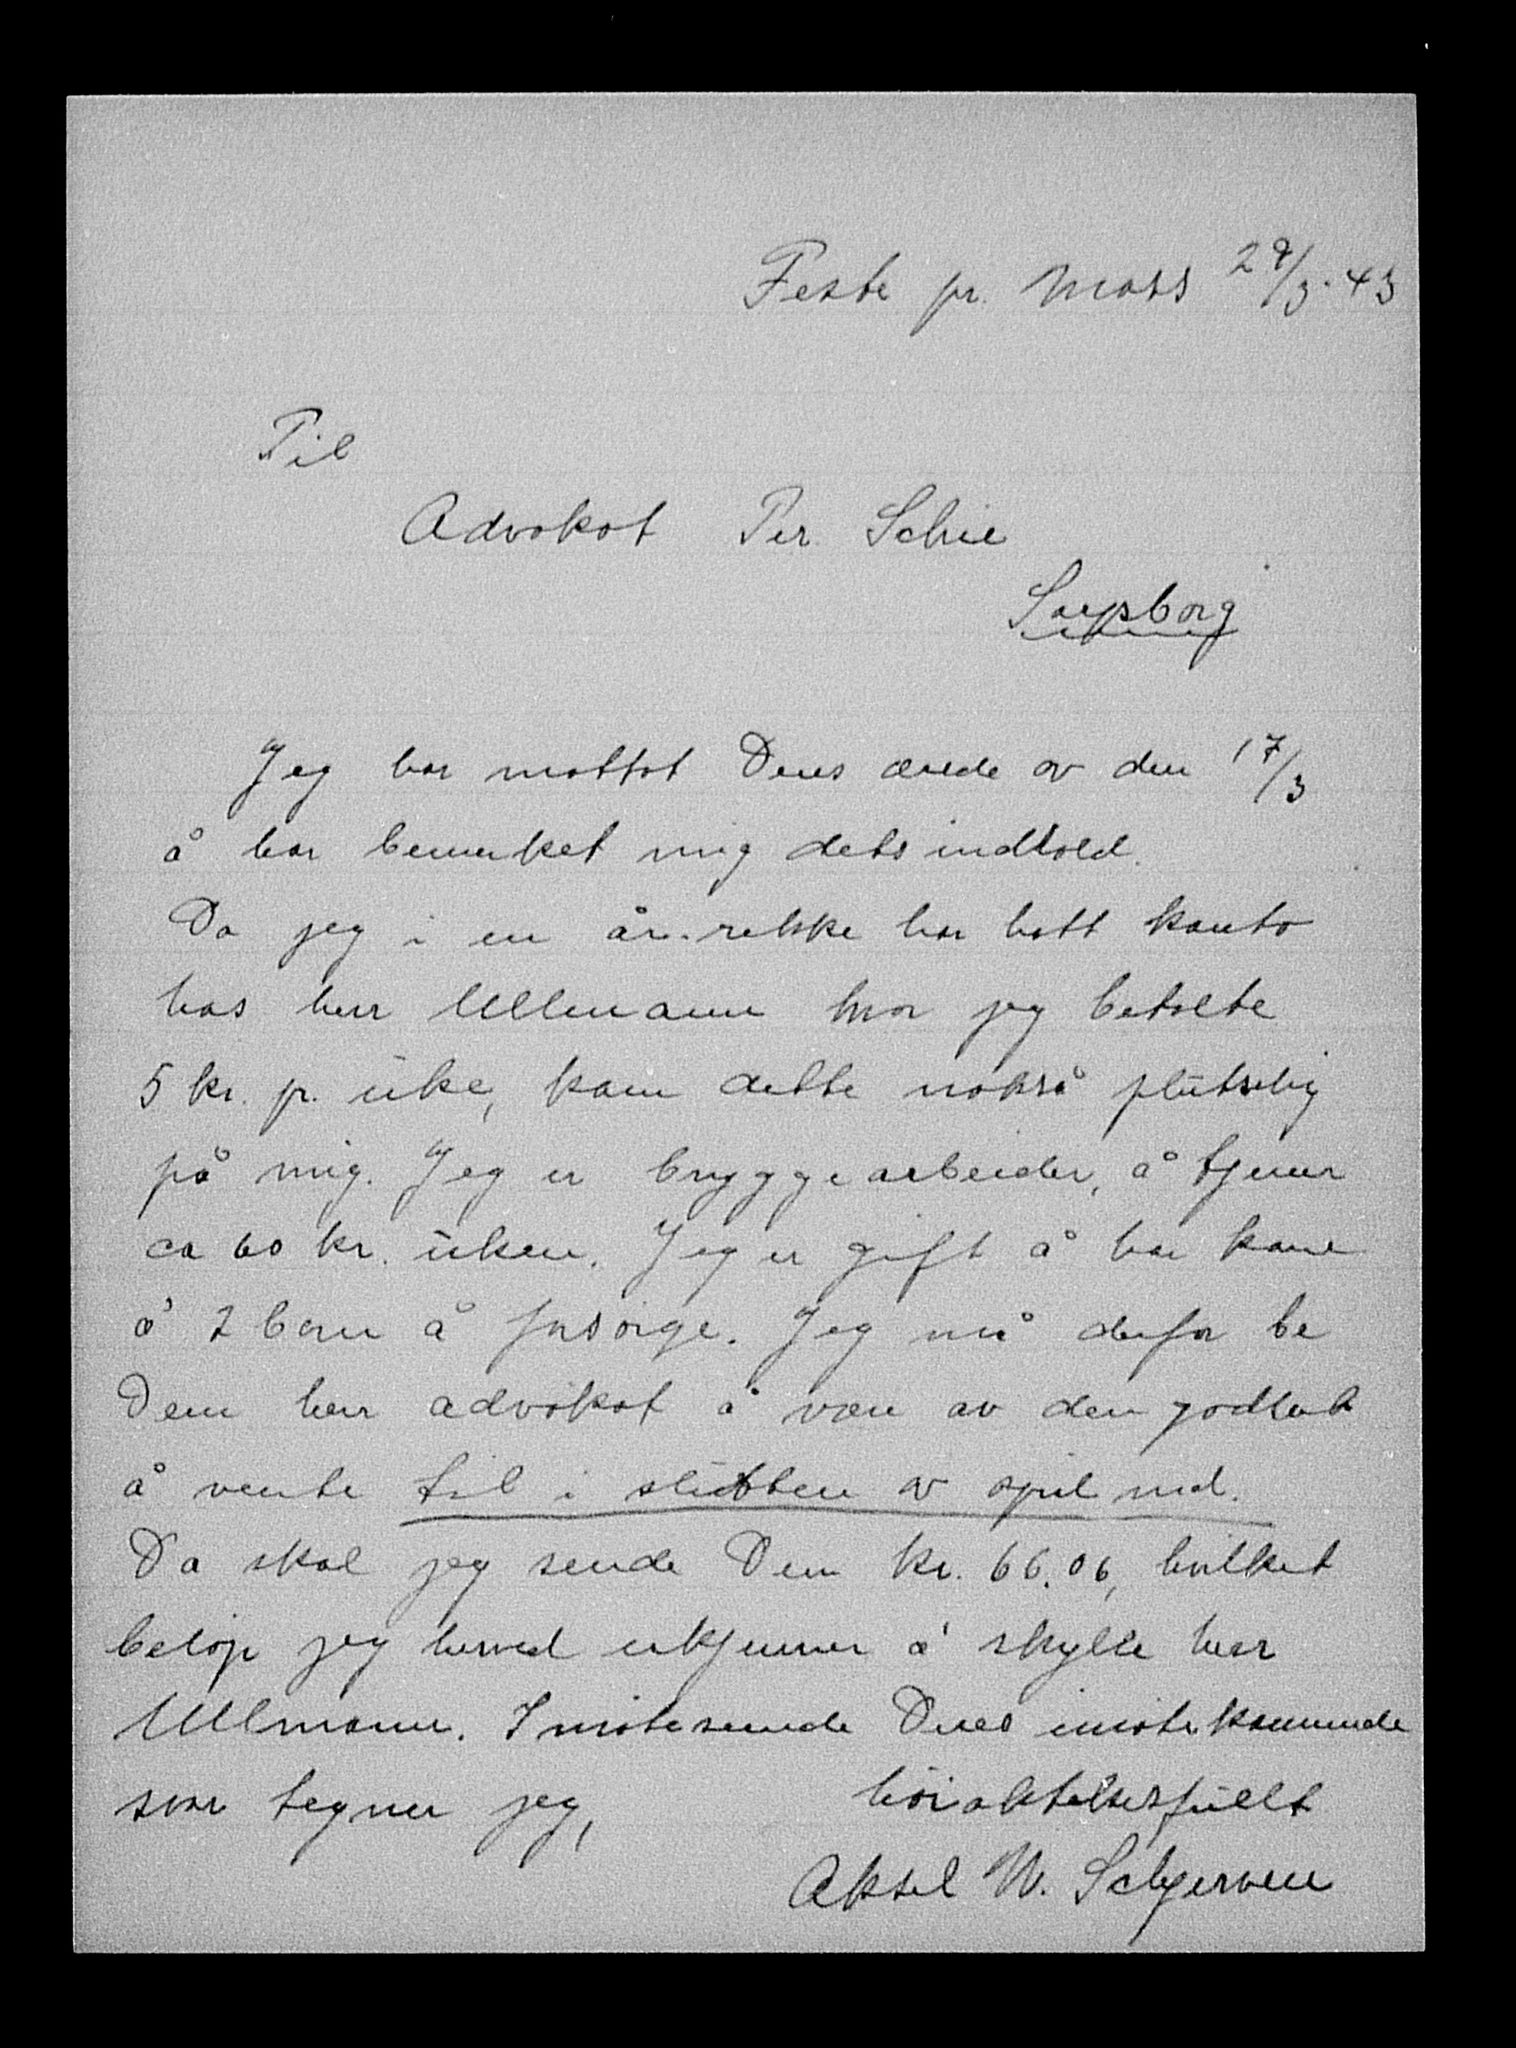 Feste pr. Moss 29/3. 43
Til
Advokat Per. Schie
Sarpsborg
Jeg har mottat Deres ærede av den 17/3
å har bemerket mig dets indhold.
Da jeg i en år.rekke har hatt konto
hos herr Ullmann hvor jeg betalte
5 kr. p. uke, kom dette nokså plutselig
på mig. Jeg er bryggearbeider, å tjener
ca 60 kr. uken. Jeg er gift å har kone
å 2 barn å forsørge. Jeg må derfor be
Dem herr advokat å være av den godhet
å vente til i slutten av april md.
Da skal jeg sende Dem kr. 66.06, hvilket
beløp jeg herved erkjenner å skylle herr
Ullmann. Imøteseende Deres imøtekommende
svar tegner jeg,
høiaktelsesfullt
Aksel W. Schjerven